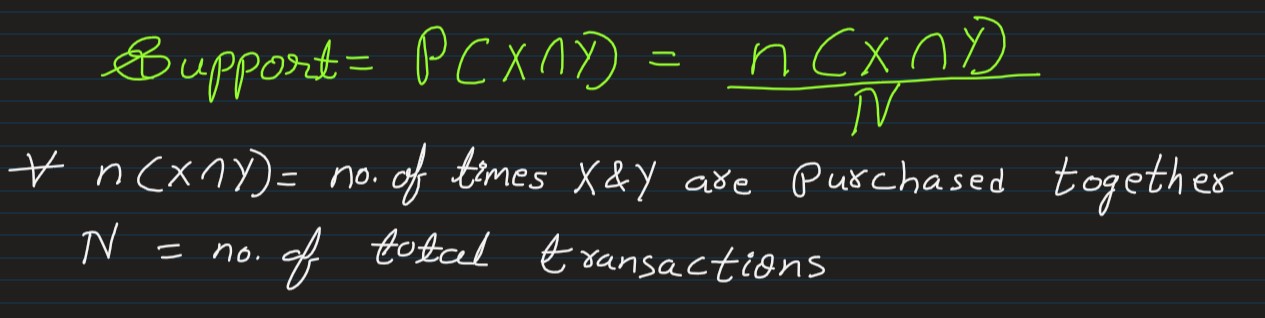 Support = P(X∩Y) = n(X∩Y) / N
∀ n(X∩Y) = no. of times X & Y are Purchased together
N = no. of total transactions